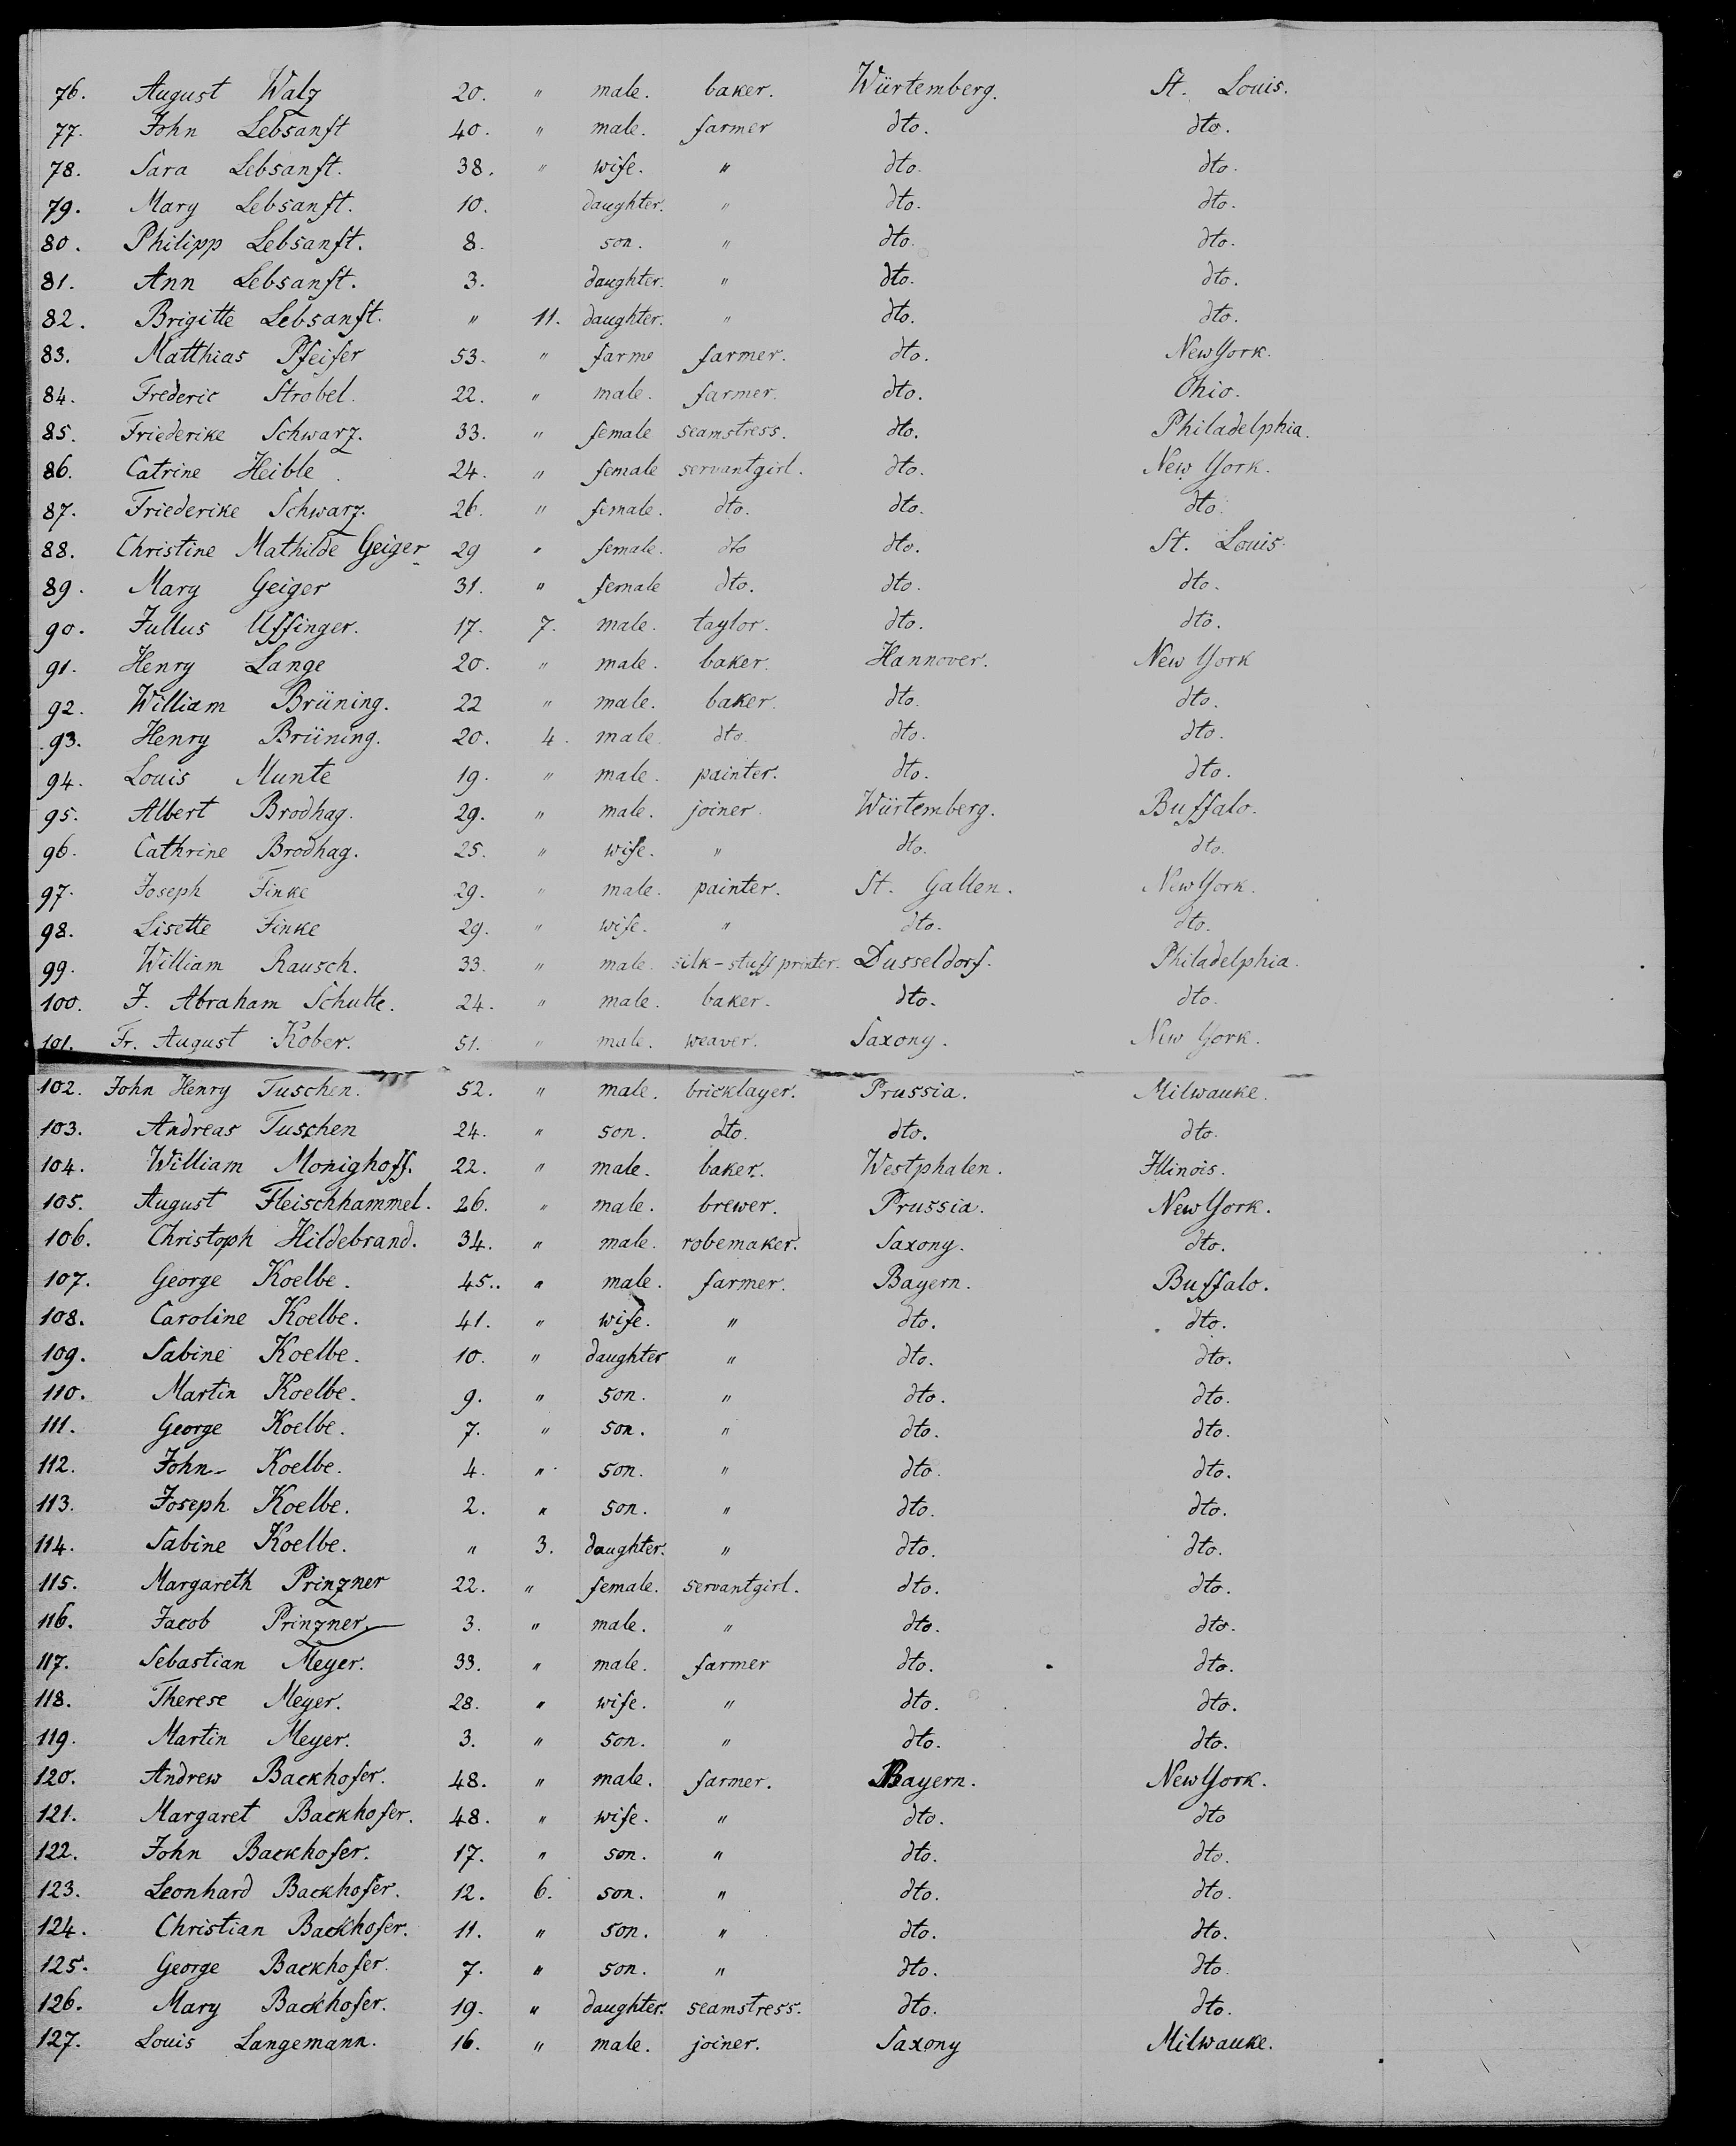 76. August Walz 20. " male. baker. Würtemberg. St. Louis.
77. John Lebsanft 40. " male. farmer dto. dto.
78. Sara Lebsanft. 38. " wife. " dto. dto.
79. Mary Lebsanft. 10. daughter. " dto. dto.
80. Philipp Lebsanft. 8. son. " dto. dto.
81. Ann Lebsanft. 3. daughter. " dto. dto.
82. Brigitte Lebsanft. " 11. daughter. " dto. dto.
83. Matthias Pfeifer 53. " farme farmer. dto. New York.
84. Frederic Strobel. 22. " male. farmer. dto. Ohio.
85. Friederike Schwarz. 33. " female seamstress. dto. Philadelphia.
86. Catrine Heible. 24. " female servantgirl. dto. New York.
87. Friederike Schwarz. 26. " female. dto. dto. dto.
88. Christine Mathilde Geiger 29 " female. dto dto. St. Louis.
89. Mary Geiger 31. " female dto. dto. dto.
90. Jullus Uffinger. 17. 7. male. taylor. dto. dto.
91. Henry Lange 20. " male. baker. Hannover. New York
92. William Brüning. 22 " male. baker. dto. dto.
93. Henry Brüning. 20. 4. male. dto. dto. dto.
94. Louis Munte 19. " male. painter. dto. dto.
95. Albert Brodhag. 29. " male. joiner. Würtemberg. Buffalo.
96. Cathrine Brodhag. 25. " wife. " dto. dto.
97. Joseph Finke 29. " male. painter. St. Gallen. New York.
98. Lisette Finke 29. " wife. " dto. dto.
99. William Rausch. 33. " male. silk-stuff printer. Dusseldorf. Philadelphia.
100. F. Abraham Schulte. 24. " male. baker. dto. dto.
101. Fr. August Kober. 51. " male. weaver. Saxony. New York.
102. John Henry Tuschen. 52. " male. bricklayer. Prussia. Milwauke.
103. Andreas Tuschen 24. " son. dto. dto. dto.
104. William Monighoff. 22. " male. baker. Westphalen. Illinois.
105. August Fleischhammel. 26. " male. brewer. Prussia. New York.
106. Christoph Hildebrand. 34. " male. robemaker. Saxony. dto.
107. George Koelbe. 45.. " male. farmer. Bayern. Buffalo.
108. Caroline Koelbe. 41. " wife. " dto. dto.
109. Sabine Koelbe. 10. " daughter " dto. dto.
110. Martin Koelbe. 9. " son. " dto. dto.
111. George Koelbe. 7. " son. " dto. dto.
112. John Koelbe. 4. " son. " dto. dto.
113. Joseph Koelbe. 2. " son. " dto. dto.
114. Sabine Koelbe. " 3. daughter. " dto. dto.
115. Margareth Prinzner 22. " female. servantgirl. dto. dto.
116. Jacob Prinzner. 3. " male. " dto. dto.
117. Sebastian Meyer. 33. " male. farmer dto. dto.
118. Therese Meyer. 28. " wife. " dto. dto.
119. Martin Meyer. 3. " son. " dto. dto.
120. Andrew Backhofer. 48. " male. farmer. Bayern. New York.
121. Margaret Backhofer. 48. " wife. " dto. dto
122. John Backhofer. 17. " son. " dto. dto.
123. Leonhard Backhofer. 12. 6. son. " dto. dto.
124. Christian Backhofer. 11. " son. " dto. dto.
125. George Backhofer. 7. " son. " dto. dto.
126. Mary Backhofer. 19. " daughter. seamstress. dto. dto.
127. Louis Langemann. 16. " male. joiner. Saxony Milwauke.